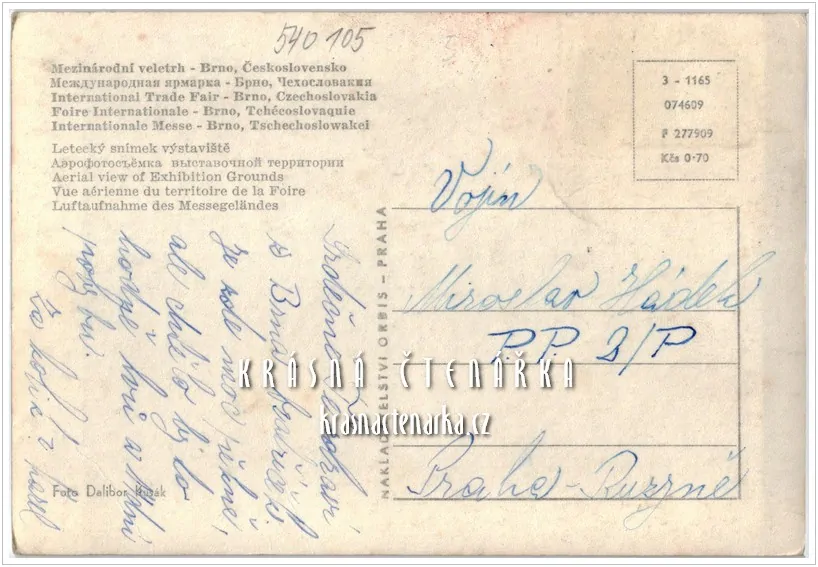 540 105
Mezinárodní veletrh - Brno, Československo
Международная ярмарка - Брно, Чехословакия
International Trade Fair - Brno, Czechoslovakia
Foire Internationale - Brno, Tchécoslovaquie
Internationale Messe - Brno, Tschechoslowakei
Letecký snímek výstaviště
Аэрофотосъёмка выставочной территории
Aerial view of Exhibition Grounds
Vue aérienne du territoire de la Foire
Luftaufnahme des Messegeländes
3 - 1165
074609
F 277909
Kčs 0·70
Vojín
Miroslav Hádek
P.P. 3/P
Praha - Ruzyně
NAKLADATELSTVÍ ORBIS - PRAHA
Srdečný pozdrav
z Brna
je zde moc pěkně,
ale chtělo by to
KRÁSNÁ ČTENÁŘKA
krasnactenarka.cz
Foto Dalibor Kusák